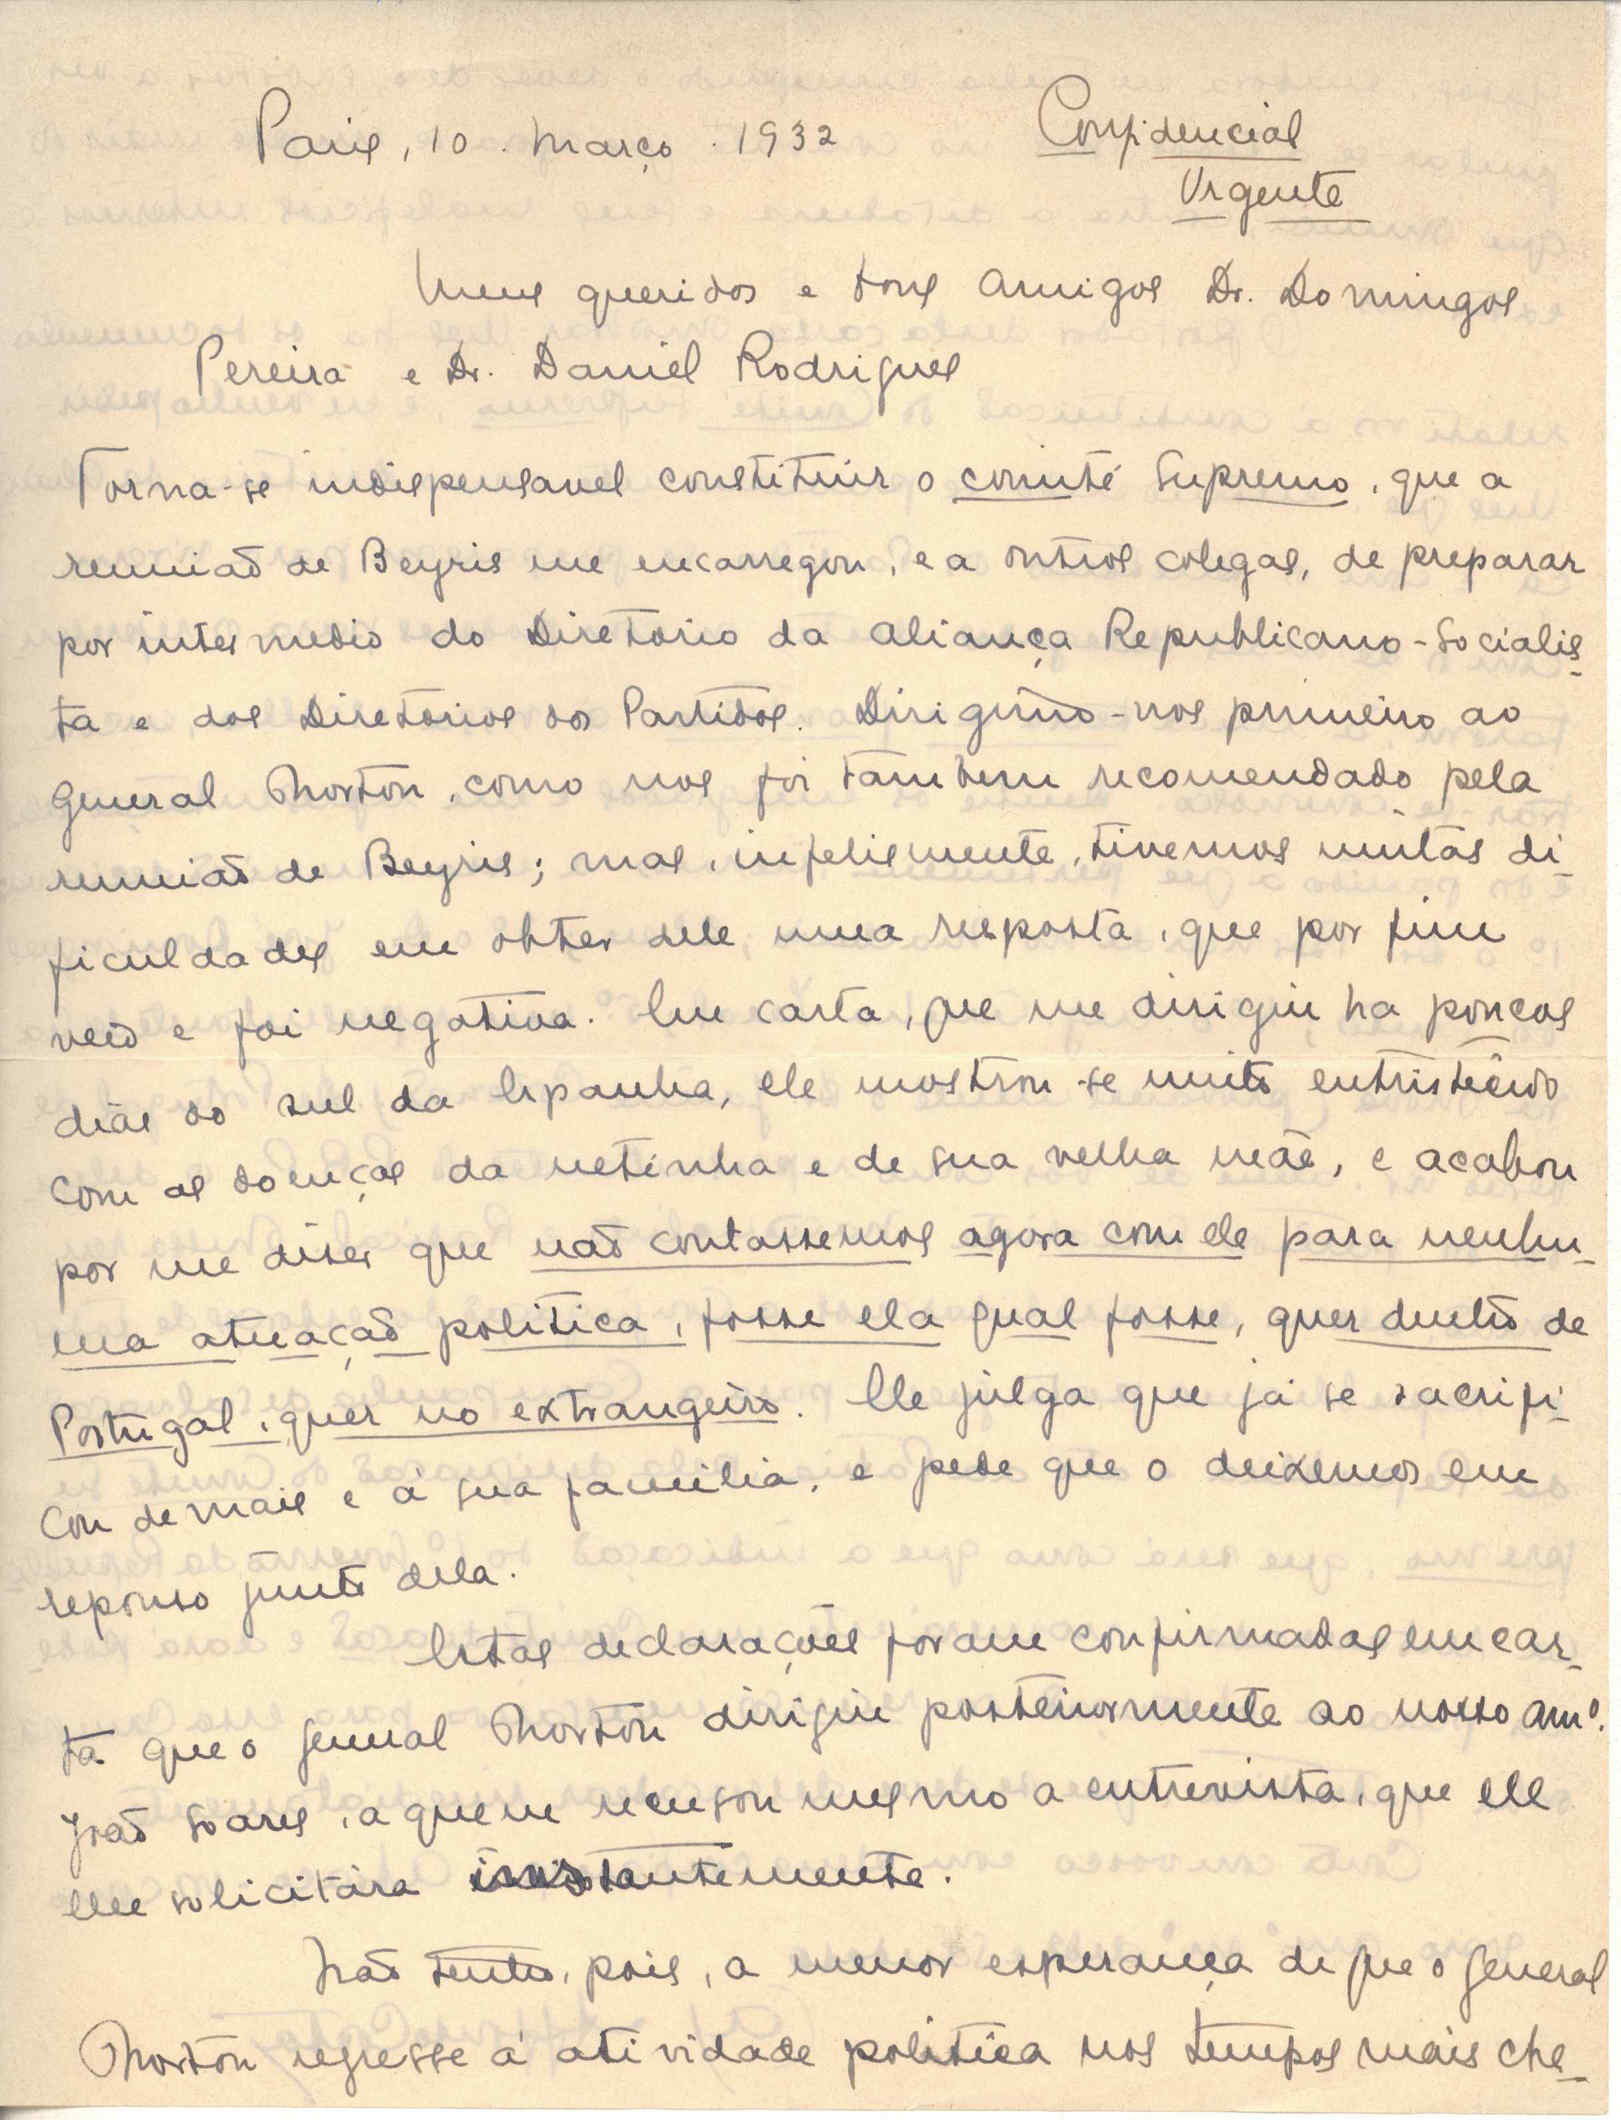 Paris, 10. Março. 1932
Confidencial
Urgente
Meus queridos e bons amigos Dr. Domingos
Pereira e Dr. Daniel Rodrigues
Torna-se indispensavel constituir o comité supremo, que a
reunião de Beyris me encarregou, e a outros colegas, de preparar
por intermedio do Diretorio da Aliança Republicano-Socialis-
ta e dos Diretorios dos Partidos. Dirigimo-nos primeiro ao
General Norton, como nos foi tambem recomendado pela
reunião de Beyris; mas, infelismente, tivemos muitas di-
ficuldades em obter dele uma resposta, que por fim
veio e foi negativa. Em carta, que me dirigiu ha poucos
dias do sul da Espanha, ele mostrou-se muito entristecido
com as doenças da netinha e de sua velha mãe, e acabou
por me diser que não contassemos agora com ele para nenhu-
ma atuação politica, fosse ela qual fosse, quer dentro de
Portugal, quer no extrangeiro. Ele julga que já se sacrifi-
cou demais e á sua familia, e pede que o deixemos em
repouso junto dela.
Estas declarações foram confirmadas em car-
ta que o general Norton dirigiu posteriormente ao nosso amº.
João Soares, a quem recusou mesmo a entrevista, que ele
lhe solicitára instantemente.
Não tenho, pois, a menor esperança de que o General
Norton regresse á atividade politica nos tempos mais che-